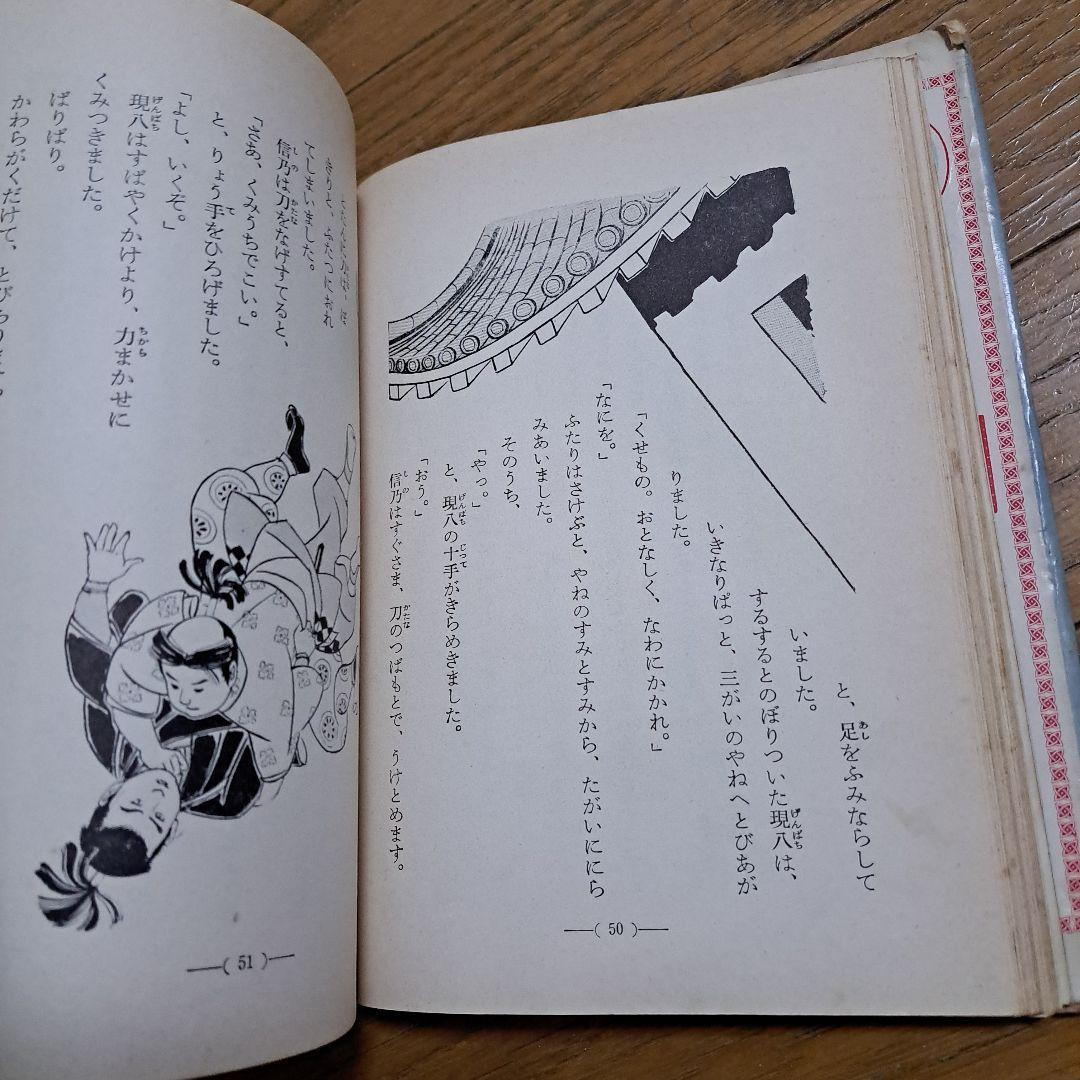 と、足をふみならして
いました。
するするとのぼりついた現八は、
いきなりぱっと、三がいのやねへとびあが
りました。
「くせもの。おとなしく、なわにかかれ。」
「なにを。」
ふたりはさけぶと、やねのすみとすみから、たがいににら
みあいました。
そのうち、
「やっ。」
と、現八の十手がきらめきました。
「おう。」
信乃はすぐさま、刀のつばもとで、うけとめます。
―( 50 )―
きりと、ふたつにおれ
てしまいました。
信乃は刀をなげすてると、
「さあ、くみうちでこい。」
と、りょう手をひろげました。
「よし、いくぞ。」
現八はすばやくかけより、力まかせに
くみつきました。
ばりばり。
かわらがくだけて、
―( 51 )―